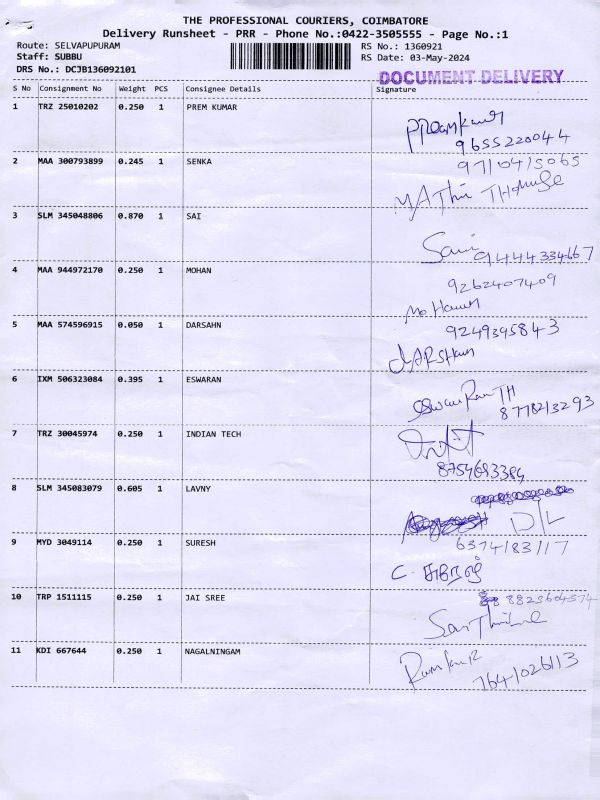 THE PROFESSIONAL COURIERS, COIMBATORE
Delivery Runsheet - PRR - Phone No.:0422-3505555 - Page No.:1
Route: SELVAPUPURAM RS No.: 1360921
Staff: SUBBU RS Date: 03-May-2024
DRS No.: DCJB136092101
DOCUMENT DELIVERY
S No Consignment No Weight PCS Consignee Details Signature
1 TRZ 25010202 0.250 1 PREM KUMAR
Premkumar
9655220044
2 MAA 300793899 0.245 1 SENKA
9710415065
MAThi
3 SLM 345048806 0.870 1 SAI
Sai 9444334667
4 MAA 944972170 0.250 1 MOHAN
9262407409
Mohan
5 MAA 574596915 0.050 1 DARSAHN
9249395843
DARSHan
6 IXM 506323084 0.395 1 ESWARAN
eswaran TH
8778213293
7 TRZ 30045974 0.250 1 INDIAN TECH
8754693384
8 SLM 345083079 0.605 1 LAVNY
D/L
9 MYD 3049114 0.250 1 SURESH
6374183117
C. சுரேஷ்
10 TRP 1511115 0.250 1 JAI SREE
8825604574
11 KDI 667644 0.250 1 NAGALNINGAM
Ramkumar
7641026113